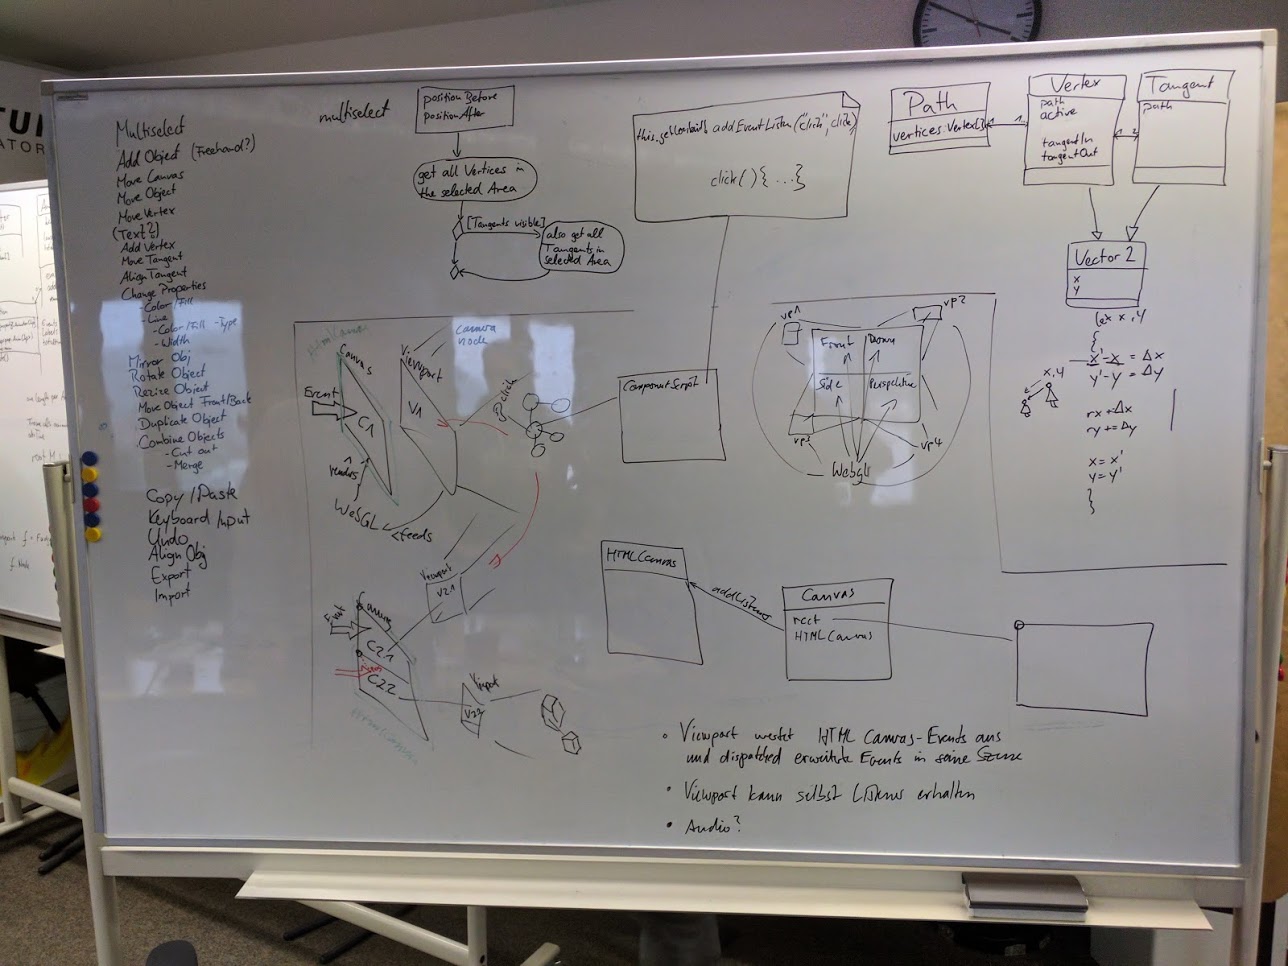 Multiselect
Add Object (Freehand?)
Move Canvas
Move Object
Move Vertex
(Text?)
Add Vertex
Move Tangent
Align Tangent
Change Properties
- Color/Fill
- Line
- Color/Fill - Type
- Width
Mirror Obj
Rotate Object
Resize Object
Move Object Front/Back
Duplicate Object
Combine Objects
- Cut out
- Merge
Copy/Paste
Keyboard Input
Undo
Align Obj
Export
Import
multiselect
positionBefore
positionAfter
get all Vertices in
the selected Area
[Tangents visible]
also get all
Tangents in
selected Area
addEventListen("click", click)
click(){ ...}
Path
vertices: Vertex[]
1
Vertex
path
active
tangentIn
tangentOut
2
Tangent
path
Vector 2
x
y
x, y
{
x'-x = Δx
y'-y = Δy
x,y
rx+=Δx
ry+=Δy
x = x'
y = y'
}
Canvas
Viewport
Camera
node
Event
C1
V1
renders
WebGL
feeds
click
ComponentScript
vp1
vp2
Front
Down
Side
Perspektive
vp3
vp4
WebGl
Viewport
V2.1
Event
Canvas
C2.1
C2.2
Viewport
V2.2
HTMLCanvas
addListener
Canvas
rect
HTMLCanvas
• Viewport wertet HTML Canvas-Events aus
und dispatched erweiterte Events in seine Szene
• Viewport kann selbst Listener erhalten
• Audio?